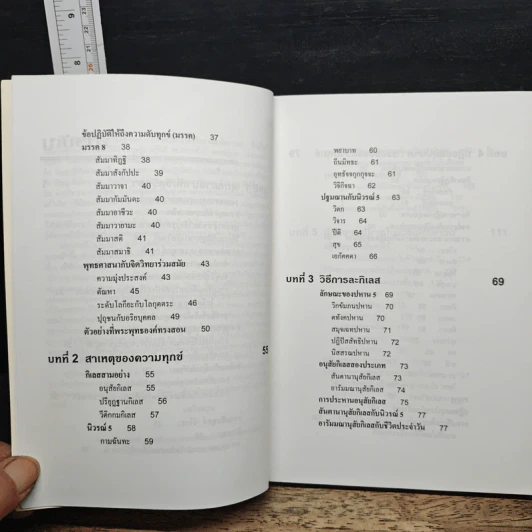 ข้อปฏิบัติให้ถึงความดับทุกข์ (มรรค) 37
มรรค 8 38
สัมมาทิฏฐิ 38
สัมมาสังกัปปะ 39
สัมมาวาจา 40
สัมมากัมมันตะ 40
สัมมาอาชีวะ 40
สัมมาวายามะ 40
สัมมาสติ 41
สัมมาสมาธิ 41
พุทธศาสนากับจิตวิทยาร่วมสมัย 43
ความมุ่งประสงค์ 43
ตัณหา 45
ระดับโลกียะกับโลกุตตระ 46
ปุถุชนกับอริยบุคคล 49
ตัวอย่างที่พระพุทธองค์ทรงสอน 50
บทที่ 2 สาเหตุของความทุกข์ 55
กิเลสสามอย่าง 55
อนุสัยกิเลส 55
ปริยุฏฐานกิเลส 56
วีติกกมกิเลส 57
นิวรณ์ 5 58
กามฉันทะ 59
พยาบาท 60
ถีนมิทธะ 61
อุทธัจจกุกกุจจะ 61
วิจิกิจฉา 62
ปฐมฌานกับนิวรณ์ 5 63
วิตก 63
วิจาร 64
ปีติ 64
สุข 65
เอกัคคตา 66
บทที่ 3 วิธีการละกิเลส 69
ลักษณะของปหาน 5 69
วิกขัมภนปหาน 70
ตทังคปหาน 70
สมุจเฉทปหาน 71
ปฏิปัสสัทธิปหาน 72
นิสสรณปหาน 72
อนุสัยกิเลสสองประเภท 73
สันตานานุสัยกิเลส 73
อารัมมณานุสัยกิเลส 74
การประหานอนุสัยกิเลส 75
สันตานานุสัยกิเลสกับนิวรณ์ 5 77
อารัมมณานุสัยกิเลสกับชีวิตประจำวัน 77